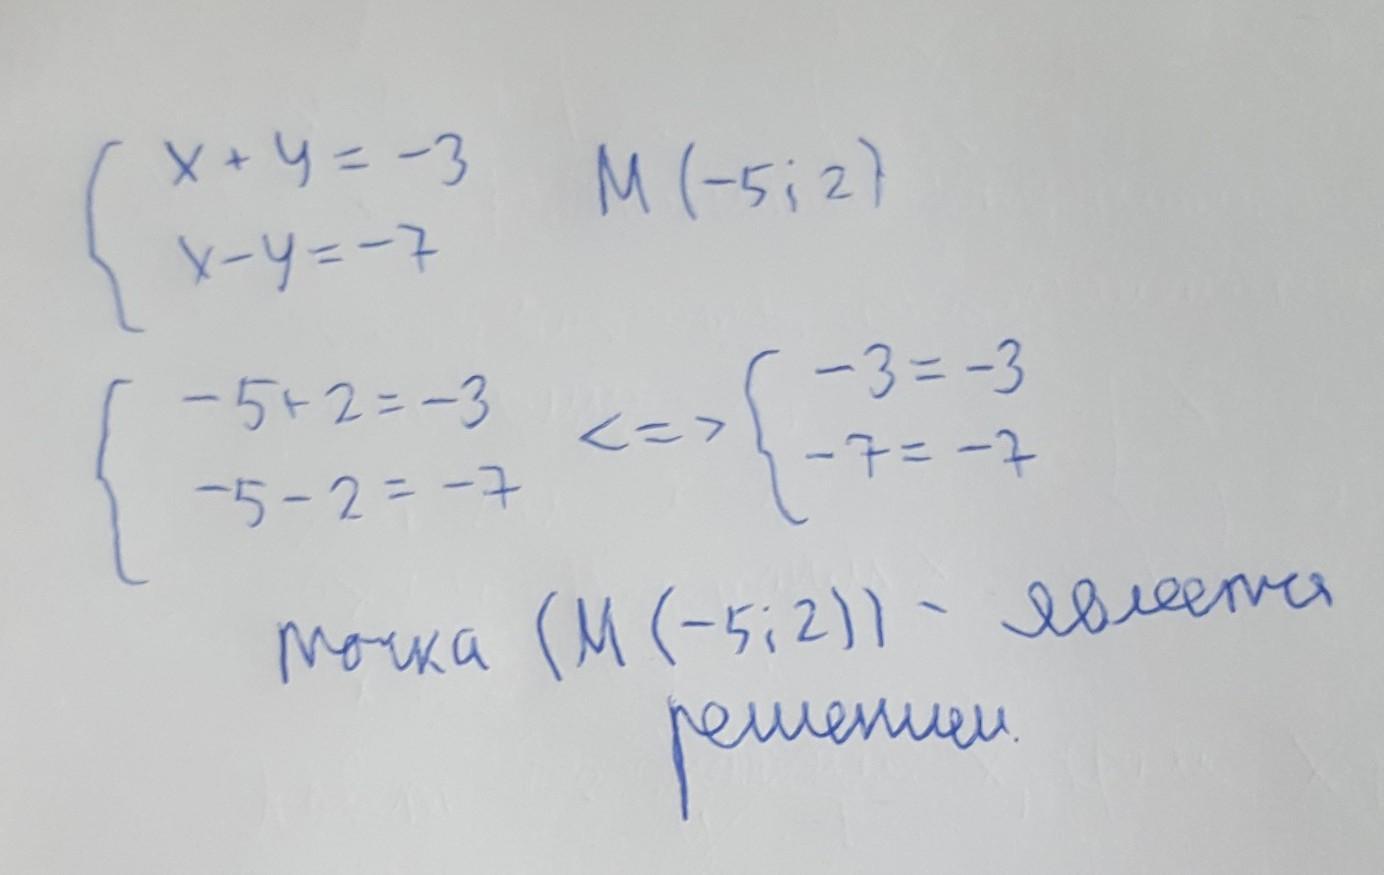 { x + y = -3   M (-5; 2)
x - y = -7
{ -5 + 2 = -3 <=> { -3 = -3
-5 - 2 = -7   -7 = -7
точка (M (-5; 2)) - является
решением.